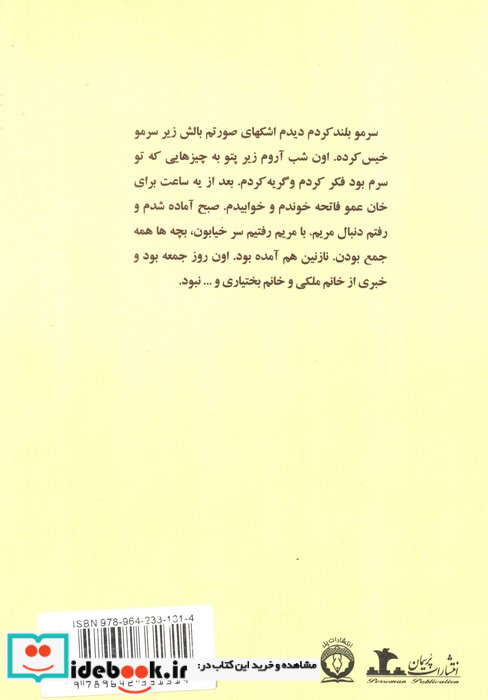 سرمو بلند کردم دیدم اشکهای صورتم بالش زیر سرمو
خیس کرده. اون شب آروم زیر پتو به چیزهایی که تو
سرم بود فکر کردم وگریه کردم. بعد از یه ساعت برای
خان عمو فاتحه خوندم و خوابیدم. صبح آماده شدم و
رفتم دنبال مریم. با مریم رفتیم سر خیابون، بچه ها همه
جمع بودن. نازنین هم آمده بود. اون روز جمعه بود و
خبری از خانم ملکی و خانم بختیاری و ... نبود.
ISBN 978-964-233-131-4
انتشارات پل
انتشارات پُرسمان
Porseman Publication
مشاهده و خرید این کتاب در:
idebook.ir